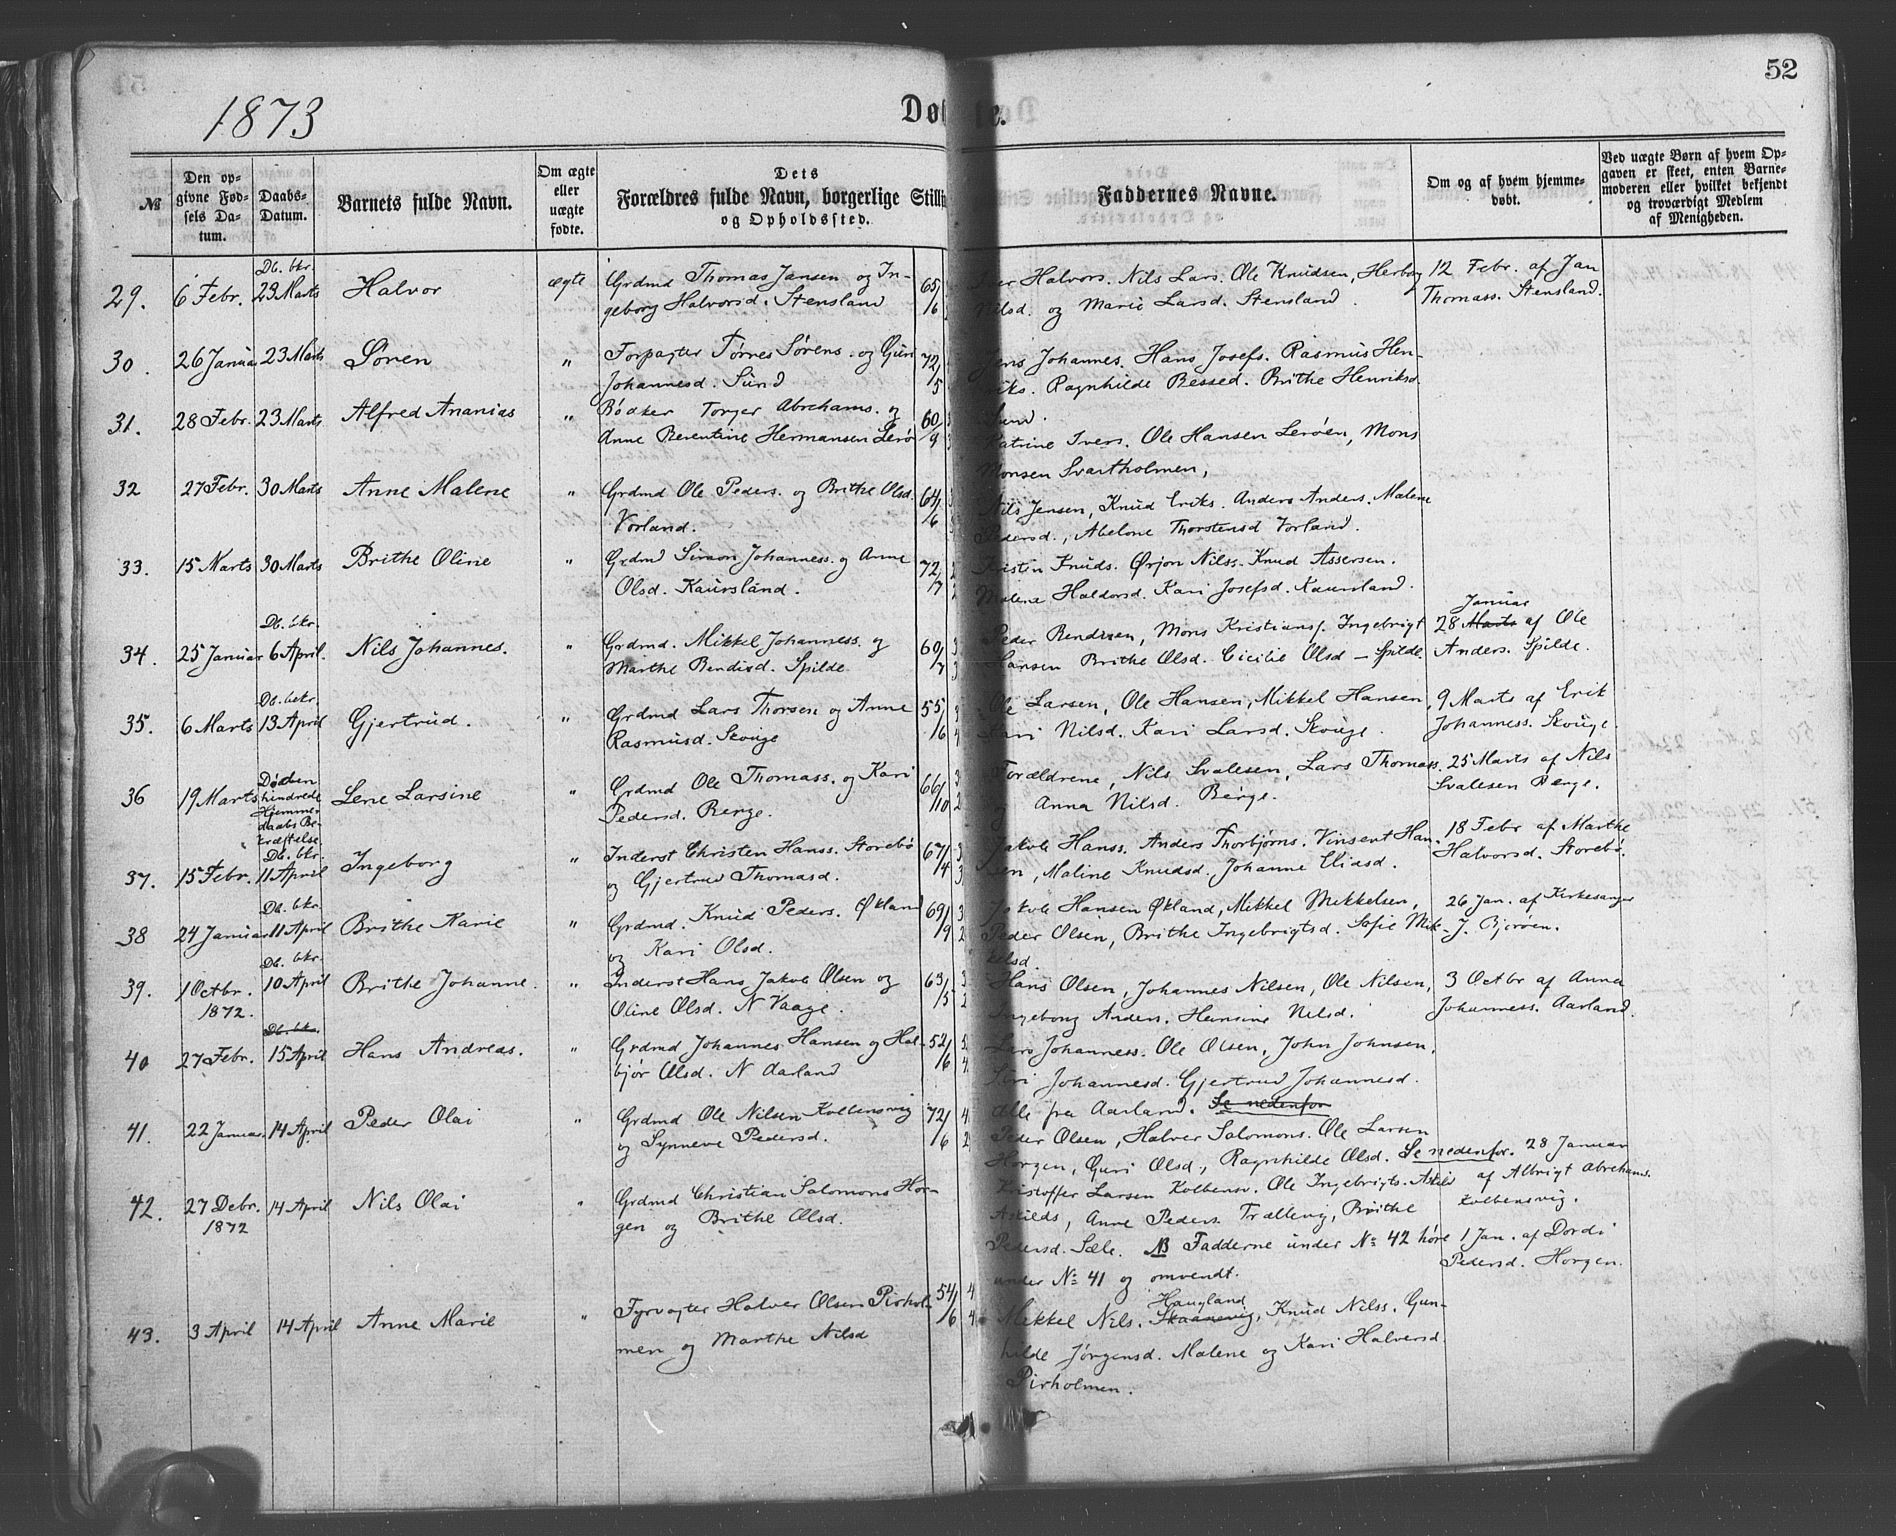 52
1873
Døbte.
№
Den op-
givne Fød-
sels Da-
tum.
Daabs-
Datum.
Barnets fulde Navn.
Om ægte
eller
uægte
fødte.
Dets
Forældres fulde Navn, borgerlige Stilling
og Opholdssted.
Faddernes Navne.
Om og af hvem hjemme-
døbt.
Ved uægte Børn af hvem Op-
gaven er skeet, enten Barne-
moderen eller hvilket bekjendt
og troværdigt Medlem
af Menigheden.
29. 6 Febr. Db. bkr. 23 Marts Halvor ægte
Grdmd Thomas Jansen og In-
geborg Halvorsd. Stensland
65/6
Halvors. Nils Lars. Ole Knudsen, Herbog
Nilsd. og Marie Larsd. Stensland.
12 Febr. af Jan
Thomass. Stensland.
30. 26 Januar 23 Marts Søren "
Forpagter Tørres Sørens. og Guri
Johannesd. Sund
72/5
Jens Johannes. Hans Josefs. Rasmus Hen-
riks. Ragnhilde Bessed. Brithe Henriksd
Sund.
31. 28 Febr. 23 Marts Alfred Ananias "
Bødker Torger Abrahams. og
Anne Berentine Hermansen Lerø
60/9
Katrine Ivers. Ole Hansen Lerøen, Mons
Monsen Svartholmen,
32 27 Febr. 30 Marts Anne Malene "
Grdmd Ole Peders. og Brithe Olsd.
Vorland.
64/6
Nils Jensen, Knud Eriks. Anders Anders. Malene
Pedersd., Abelone Thorstensd Vorland.
33. 15 Marts 30 Marts Brithe Oline "
Grdmd Simon Johanness. og Anne
Olsd. Kaursland.
72/7
Kristen Knuds. Ørjon Nilss. Knud Assersen.
Malene Haldorsd. Kari Josefsd. Kaursland.
34. 25 Januar Db. bkr. 6 April. Nils Johannes. "
Grdmd. Mikkel Johanness. og
Marthe Bendixd. Spilde
60/7
Peder Bendixen, Mons Kristians. Ingebrigt
Hansen Brithe Olsd. Cicilie Olsd – Spilde.
Januar
28 Marts af Ole
Anders. Spilde.
35. 6 Marts Db. bekr. 13 April Gjertrud. "
Grdmd Lars Thorsen og Anne
Rasmusd. Skouge
55/6
Ole Larsen, Ole Hansen, Mikkel Hansen,
Kari Nilsd. Kari Larsd. Skouge.
9 Marts af Erik
Johanness. Skouge.
36 19 Marts Lene Larsine "
Døden
hindrede
Hjemme-
daabs Be-
kræftelse
Grdmd Ole Thomass. og Kari
Pedersd. Berge.
66/10
Forældrene, Nils Svalesen, Lars Thomass.
og Anna Nilsd. Berge.
25 Marts af Nils
Svalesen Berge.
37. 15 Febr. Db. bkr. 11 April Ingeborg "
Inderst Christen Hanss. Storebø
og Gjertrud Thomasd.
67/4
Jakob Hanss. Anders Thorbjørns. Vinsent Han-
sen, Maline Knudsd. Johanne Eliasd.
18 Febr af Marthe
Halvorsd. Storebø.
38 24 Januar Db. bkr. 11 April Brithe Karie "
Grdmd. Knud Peders. Økland
og Kari Olsd.
69/9
Jakob Hansen Økland, Mikkel Mikkelsen,
Peder Olsen, Brithe Ingebrigtsd. Sofie Mik-
kelsd.
26 Jan. af Kirkesanger
J. Bjorøen.
39. 1 Octbr. 1872. Db. bkr. 10 April Brithe Johanne. "
Inderst Hans Jakob Olsen og
Oline Olsd. N Kaage.
63/5
Hans Olsen, Johannes Nilsen, Ole Nilsen,
Ingeborg Anders. Hansine Nilsd.
3 Octbr af Anna
Johanness. Aarland.
40 27 Febr. Db. bkr. 15 April Hans Andreas. "
Grdmd Johannes Hansen og Hal-
bjør Olsd. N Aarland
52/6
Lars Johanness. Ole Olsen, John Johnsen,
Johannesd. Gjertrud Johannesd.
Alle fra Aarland. Se nedenfor
41. 22 Januar. 14 April Peder Olai "
Grdmd Ole Nilsen Kolbensvig
og Synneve Pedersd.
72/6
Peder Olsen, Halver Salomons. Ole Larsen
Horgen, Guri Olsd., Ragnhilde Olsd. Se nedenfor.
28 Januar
af Albrigt Abrahams.
Kolbensvig.
42. 27 Debr. 1872 14 April Nils Olai "
Grdmd Christian Salomons Hor-
gen og Brithe Olsd.
Kristoffer Larsen Kolbensv. Ole Ingebrigts. Askild
Askilds, Anne Peders. Trællevig, Brithe
Pedersd. Sæle. NB Fadderne under № 42 høre
under № 41 og omvendt.
1 Jan. af Dordi
Pedersd. Horgen.
43. 3 April 14 April Anne Marie "
Fyrvogter Halver Olsen Pirhol-
men og Marthe Nilsd
54/6
Haugland
Mikkel Nils. Skaanevig, Knud Nilss. Gun-
hilde Jørgensd. Malene og Kari Halversd.
Pirholmen.